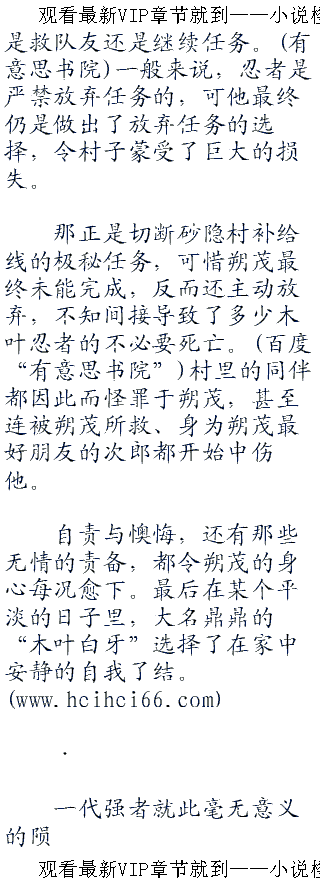 观看最新VIP章节就到——小说检
是救队友还是继续任务。(有
意思书院)一般来说，忍者是
严禁放弃任务的，可他最终
仍是做出了放弃任务的选
择，令村子蒙受了巨大的损
失。
那正是切断砂隐村补给
线的极秘任务，可惜朔茂最
终未能完成，反而还主动放
弃，不知间接导致了多少木
叶忍者的不必要死亡。(百度
“有意思书院”)村里的同伴
都因此而怪罪于朔茂，甚至
连被朔茂所救、身为朔茂最
好朋友的次郎都开始中伤
他。
自责与懊悔，还有那些
无情的责备，都令朔茂的身
心每况愈下。最后在某个平
淡的日子里，大名鼎鼎的
“木叶白牙”选择了在家中
安静的自我了结。
(www.hcihci66.com)
.
一代强者就此毫无意义
的陨
观看最新VIP章节就到——小说检